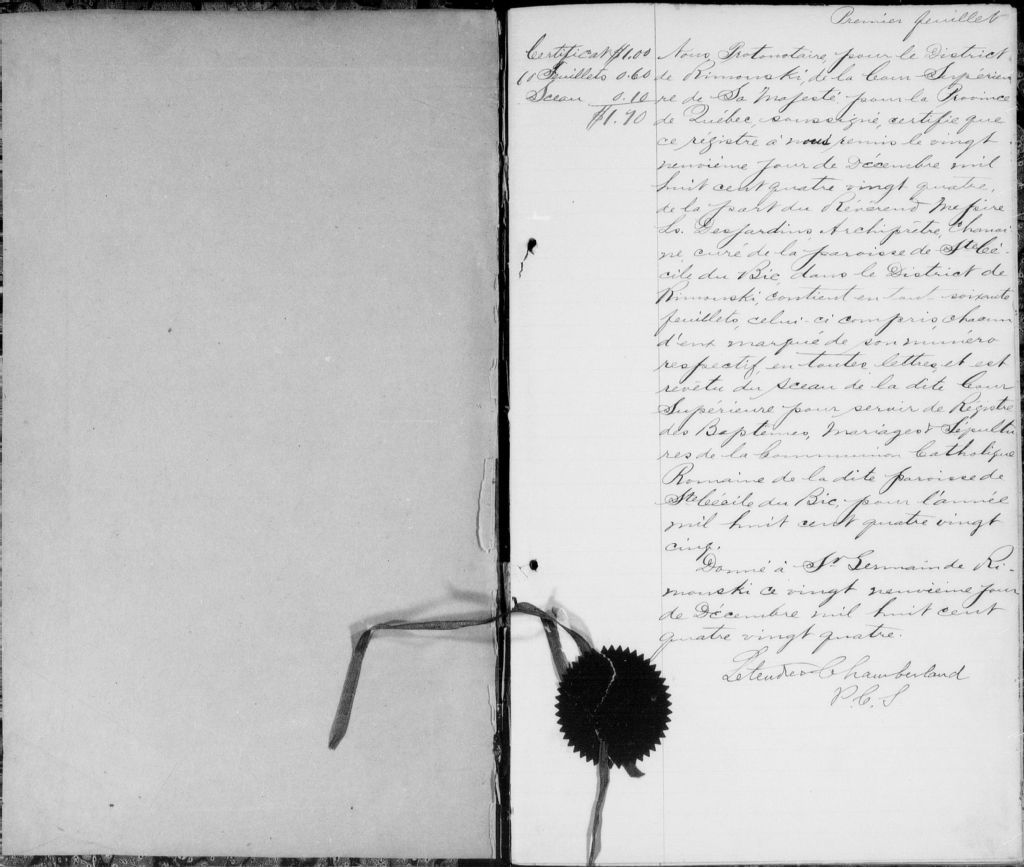 Premier feuillet
Certificat $1.00
60 Feuillets 0.60
Sceau 0.10
$1.70
Nous, Protonotaire, pour le District
de Rimouski, de la Cour Supérieu
re de Sa Majesté pour la Province
de Québec, soussigné, certifie que
ce régistre à nous remis le vingt
neuvième jour de Décembre mil
huit cent quatre vingt quatre,
de la part du Révérend Messire
Ls. Desjardins Archiprêtre, Chanoi
ne, curé de la paroisse de Ste Cé-
cile du Bic, dans le District de
Rimouski, contient en tout soixante
feuillets, celui-ci compris, chacun
d'eux marqué de son numéro
respectif, en toutes lettres, et est
revêtu du sceau de la dite Cour
Supérieure pour servir de Régistre
des Baptêmes, Mariages & Sépultu
res de la Communion Catholique
Romaine de la dite paroisse de
Ste Cécile du Bic, pour l'année
mil huit cent quatre vingt
cinq.
Donné à St Germain de Ri-
mouski ce vingt neuvième jour
de Décembre mil huit cent
quatre vingt quatre.
Letendre & Chamberland
P.C.S